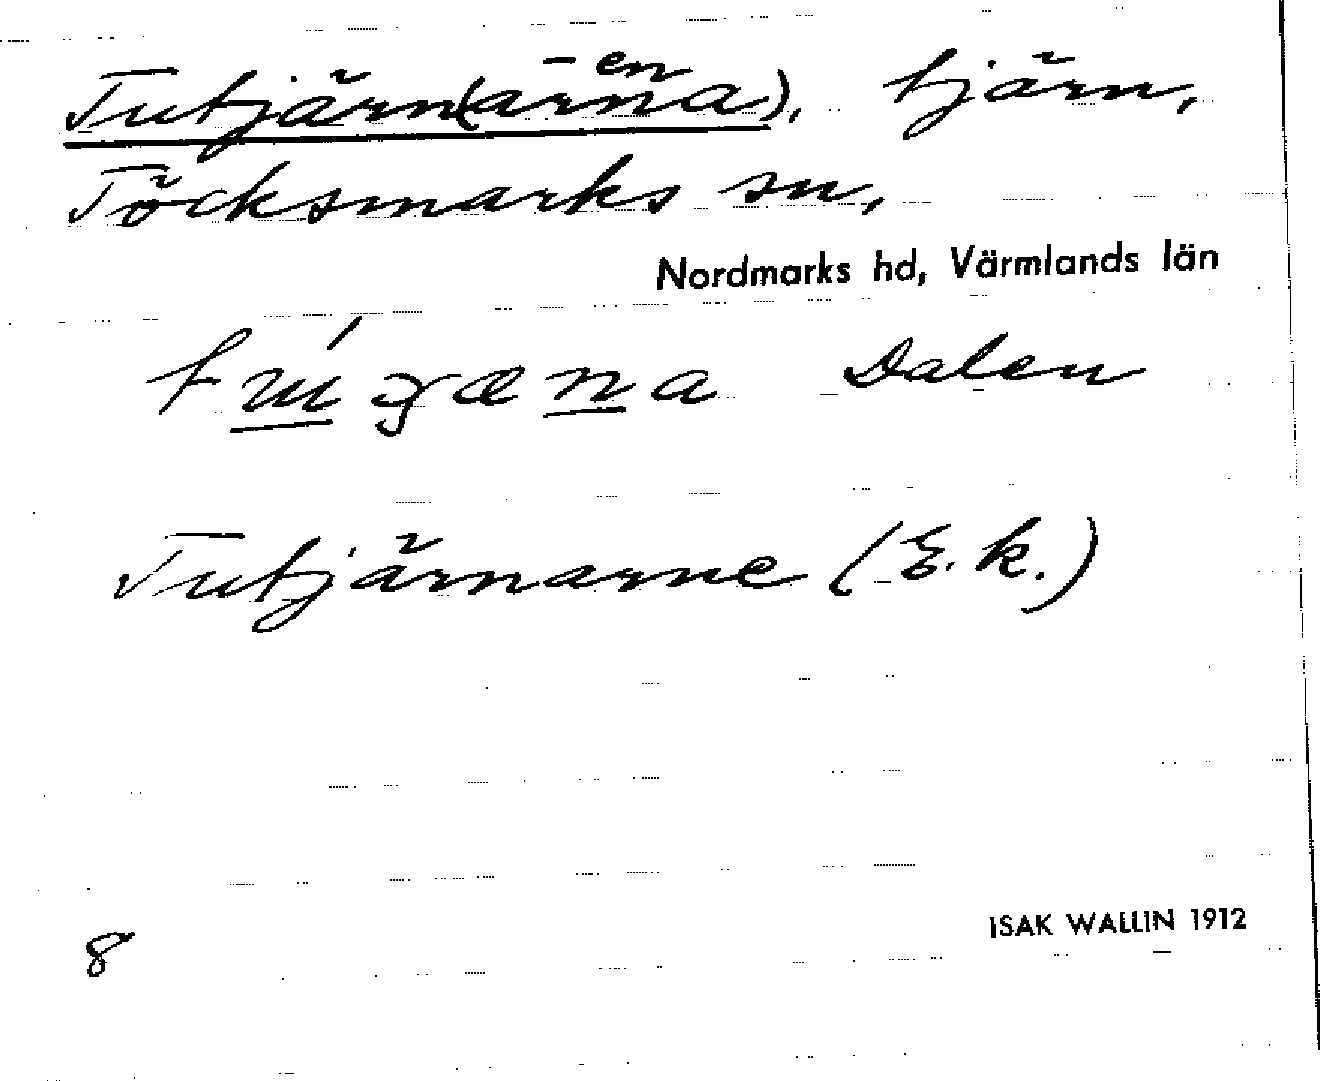 -en
Tutjärn(arna), tjärn,
Töcksmarks sn,
Nordmarks hd, Värmlands län
Dalen
Tutjärnarne (E.k.)
8 ISAK WALLIN 1912